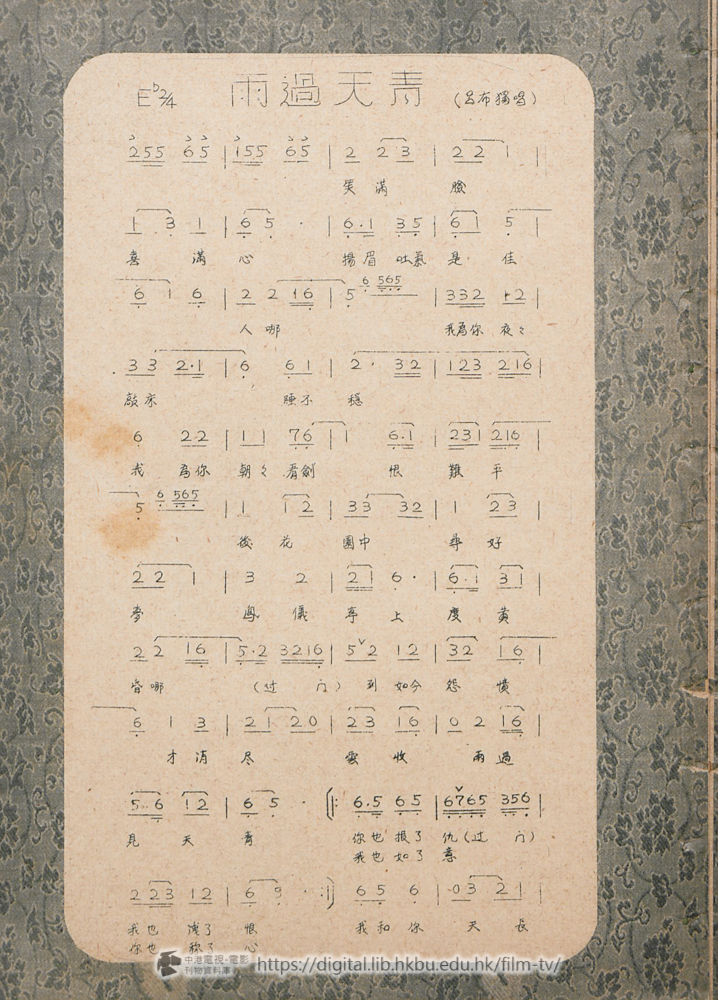 E♭2/4 雨過天青 (呂布獨唱)
255 65 | 155 65 | 2 2 3 | 2 2 1 |
笑滿 臉
1 3 1 | 6 5 · | 6·1 35 | 6 1 5 |
喜 滿 心 揚眉 吐氣 是 佳
6 1 6 | 2 2 16 | 5 6 565 | 332 12 |
人 哪 我為你 夜々
33 2·1 | 6 61 | 2· 32 | 123 216 |
敲床 睡不 穩
6 22 | 11 76 | 1 6·1 | 231 216 |
我 為你 朝々 看劍 恨 難 平
5 6 565 | 1 12 | 33 32 | 1 23 |
後 花 園中 尋 好
22 1 | 3 2 | 21 6· | 6·1 31 |
夢 鳳 儀 亭 上 度 黃
22 16 | 5·2 3216 | 5 2 12 | 32 16 |
昏哪 (过 门) 到 如今 怨 憤
6 1 3 | 21 20 | 23 16 | 0 2 16 |
才 消 尽 雲 收 雨 過
5·6 12 | 6 5 · |: 6·5 65 | 6765 356 |
見 天 青 你也 报了 仇(过 门)
我也 如了 意
2 23 12 | 6 · :| 65 6 | 03 21 |
我也 了 恨 我和 你 天 長
你也 称了 心
中港電視·電影
刊物資料庫
https://digital.lib.hkbu.edu.hk/film-tv/